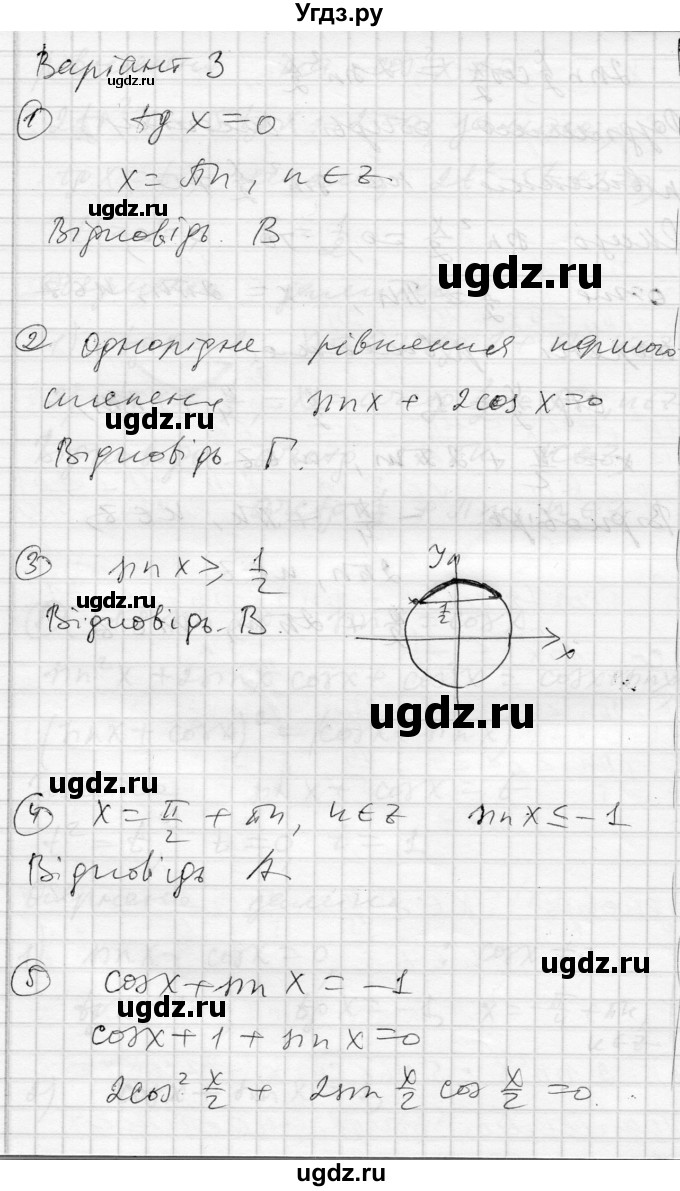 Угдз.ру
Варіант 3
① tg x = 0
x = πn, n ∈ Z.
ugdz.ru
Відповідь. В
ugdz.ru
② Однорідне рівняння першого
степеня sin x + 2cos x = 0
ugdz.ru
Відповідь Г.
③ sin x ≥ 1/2
У
ugdz.ru
1/2
Відповідь. В.
x
ugdz.ru
ugdz.ru
④ x = π/2 + πn, n ∈ Z sin x ≤ -1
Відповідь А
⑤ cos x + sin x = -1
ugdz.ru
ugdz.ru
cos x + 1 + sin x = 0
2cos² x/2 + 2sin x/2 cos x/2 = 0.
ugdz.ru